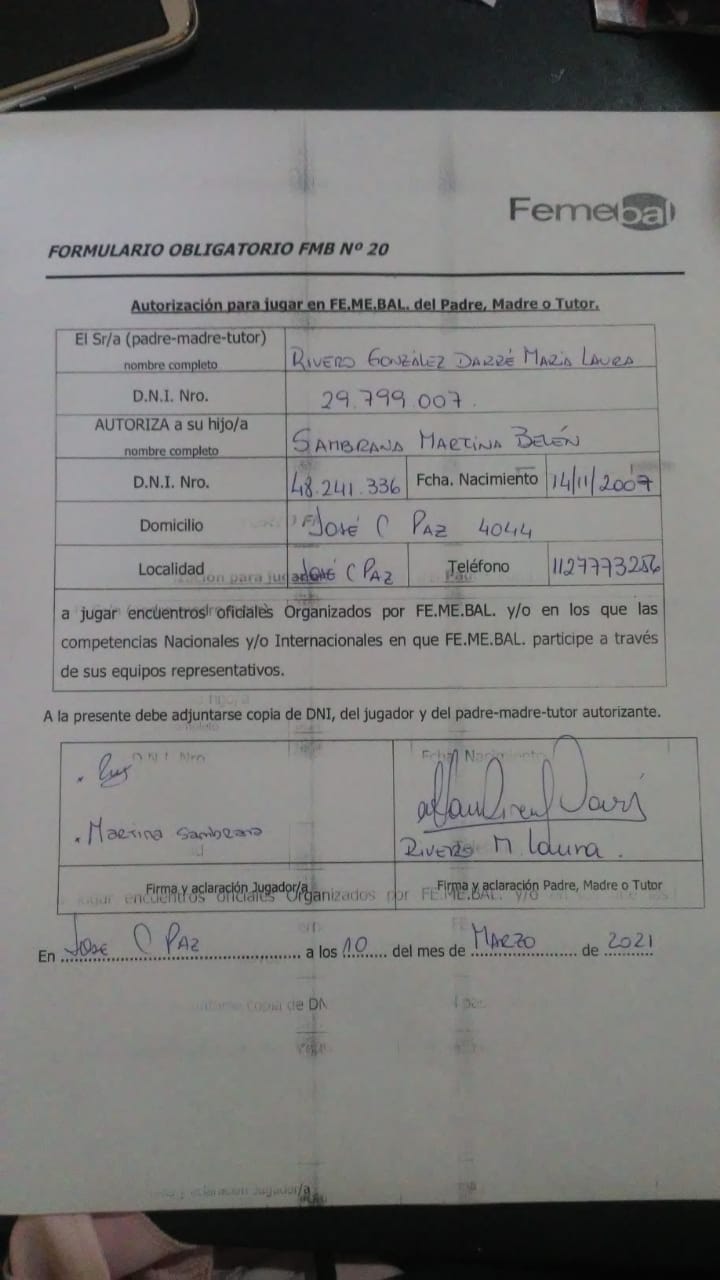 Femebal
FORMULARIO OBLIGATORIO FMB Nº 20
Autorización para jugar en FE.ME.BAL. del Padre, Madre o Tutor.
El Sr/a (padre-madre-tutor)
nombre completo
RIVERO GONZÁLEZ DARRÉ MARÍA LAURA
D.N.I. Nro.
29.799.007.
AUTORIZA a su hijo/a
nombre completo
SAMBRANA MARTINA BELÉN
D.N.I. Nro.
48.241.336
Fcha. Nacimiento
14/11/2007
Domicilio
JOSÉ C PAZ 4044
Localidad
JOSÉ C PAZ
Teléfono
1127773256
a jugar encuentros oficiales Organizados por FE.ME.BAL. y/o en los que las
competencias Nacionales y/o Internacionales en que FE.ME.BAL. participe a través
de sus equipos representativos.
A la presente debe adjuntarse copia de DNI, del jugador y del padre-madre-tutor autorizante.
. Martina Sambrana
RIVERO M. Laura.
Firma y aclaración Jugador/a
Firma y aclaración Padre, Madre o Tutor
En JOSE C PAZ a los 10 del mes de MARZO de 2021